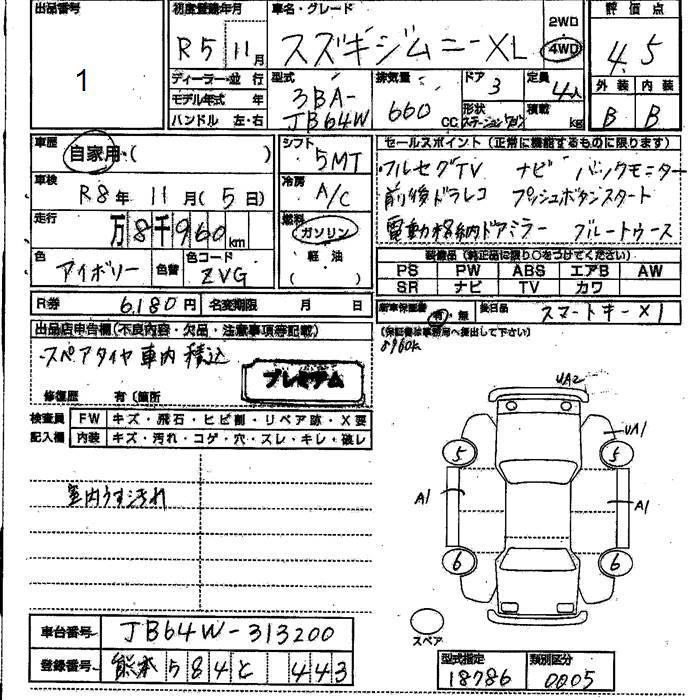 出品番号 初度登録年月 車名・グレード 2WD 評価点
1 R5 11月 スズキジムニーXL 4WD 4.5
ディーラー・並行 型式 排気量 ドア 3 定員 4人 外装 内装
モデル年式 年 3BA- 660 形状 積載 B B
ハンドル 左・右 JB64W CC ステーションワゴン kg
車歴 自家用・( ) シフト 5MT セールスポイント(正常に機能するものに限ります)
車検 R8年 11月(5日) 冷房 A/C フルセグTV ナビ バックモニター
前後ドラレコ プッシュボタンスタート
走行 万8千960km 燃料 ガソリン 電動格納ドアミラー ブルートゥース
色 アイボリー 色替 色コード ZVG 軽油 ( )
装備品(純正品に限り○をつけてください)
PS PW ABS エアB AW
SR ナビ TV カワ
R券 6,180円 名変期限 月 日 新車保証書 有・無 後日品 スマートキー×1
出品店申告欄(不良内容・欠品・注意事項等記載) (保証書は事務局へ提出して下さい)
スペアタイヤ車内積込 プレミアム
修復歴 有(箇所
検査員 FW キズ・飛石・ヒビ割・リペア跡・X要
記入欄 内装 キズ・汚れ・コゲ・穴・スレ・キレ・破レ
室内うす汚れ
UA2
UA1
5 5
A1 A1
6 6
スペア
車台番号 JB64W-313200
登録番号 熊本 584 と 443
型式指定 18786 類別区分 0005